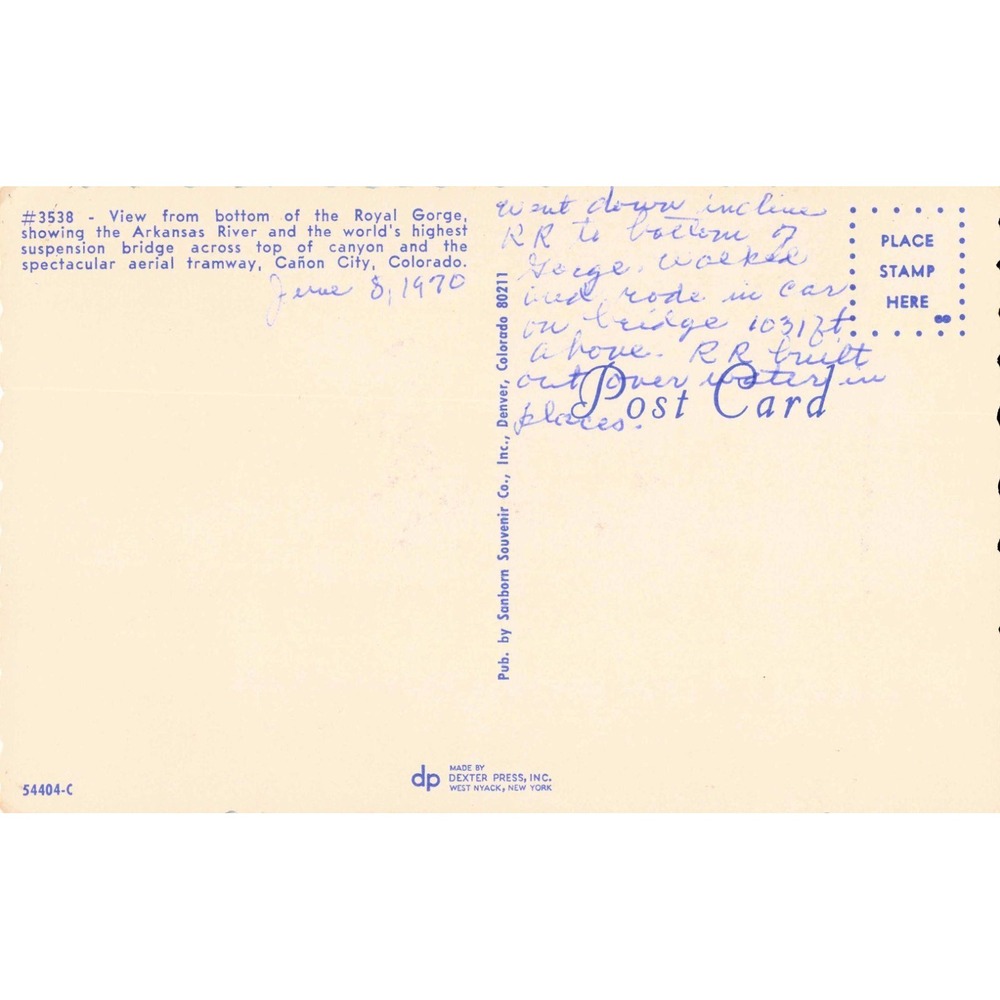 #3538 - View from bottom of the Royal Gorge,
showing the Arkansas River and the world's highest
suspension bridge across top of canyon and the
spectacular aerial tramway, Cañon City, Colorado.
June 8, 1970
went down incline
RR to bottom of
Gorge. walked
and rode in car
on bridge 1031ft
above. RR built
out over water in
places.
PLACE
STAMP
HERE
Post Card
Pub. by Sanborn Souvenir Co., Inc., Denver, Colorado 80211
54404-C
dp
MADE BY
DEXTER PRESS, INC.
WEST NYACK, NEW YORK